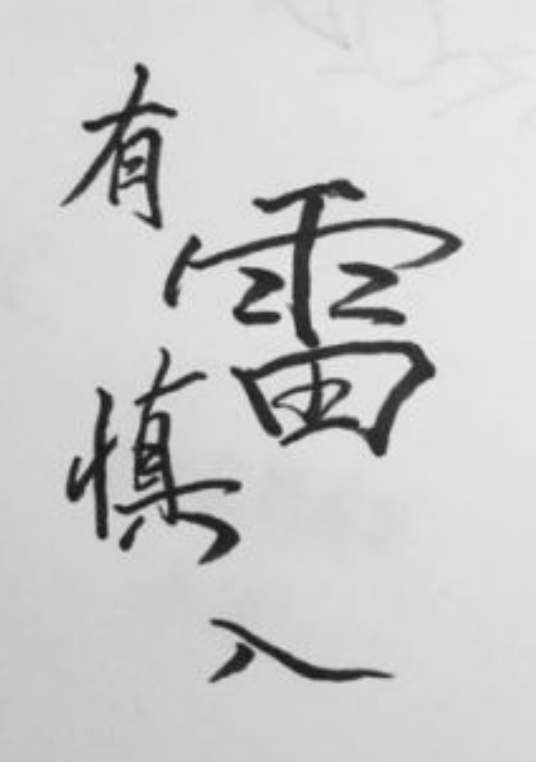 有雷慎入